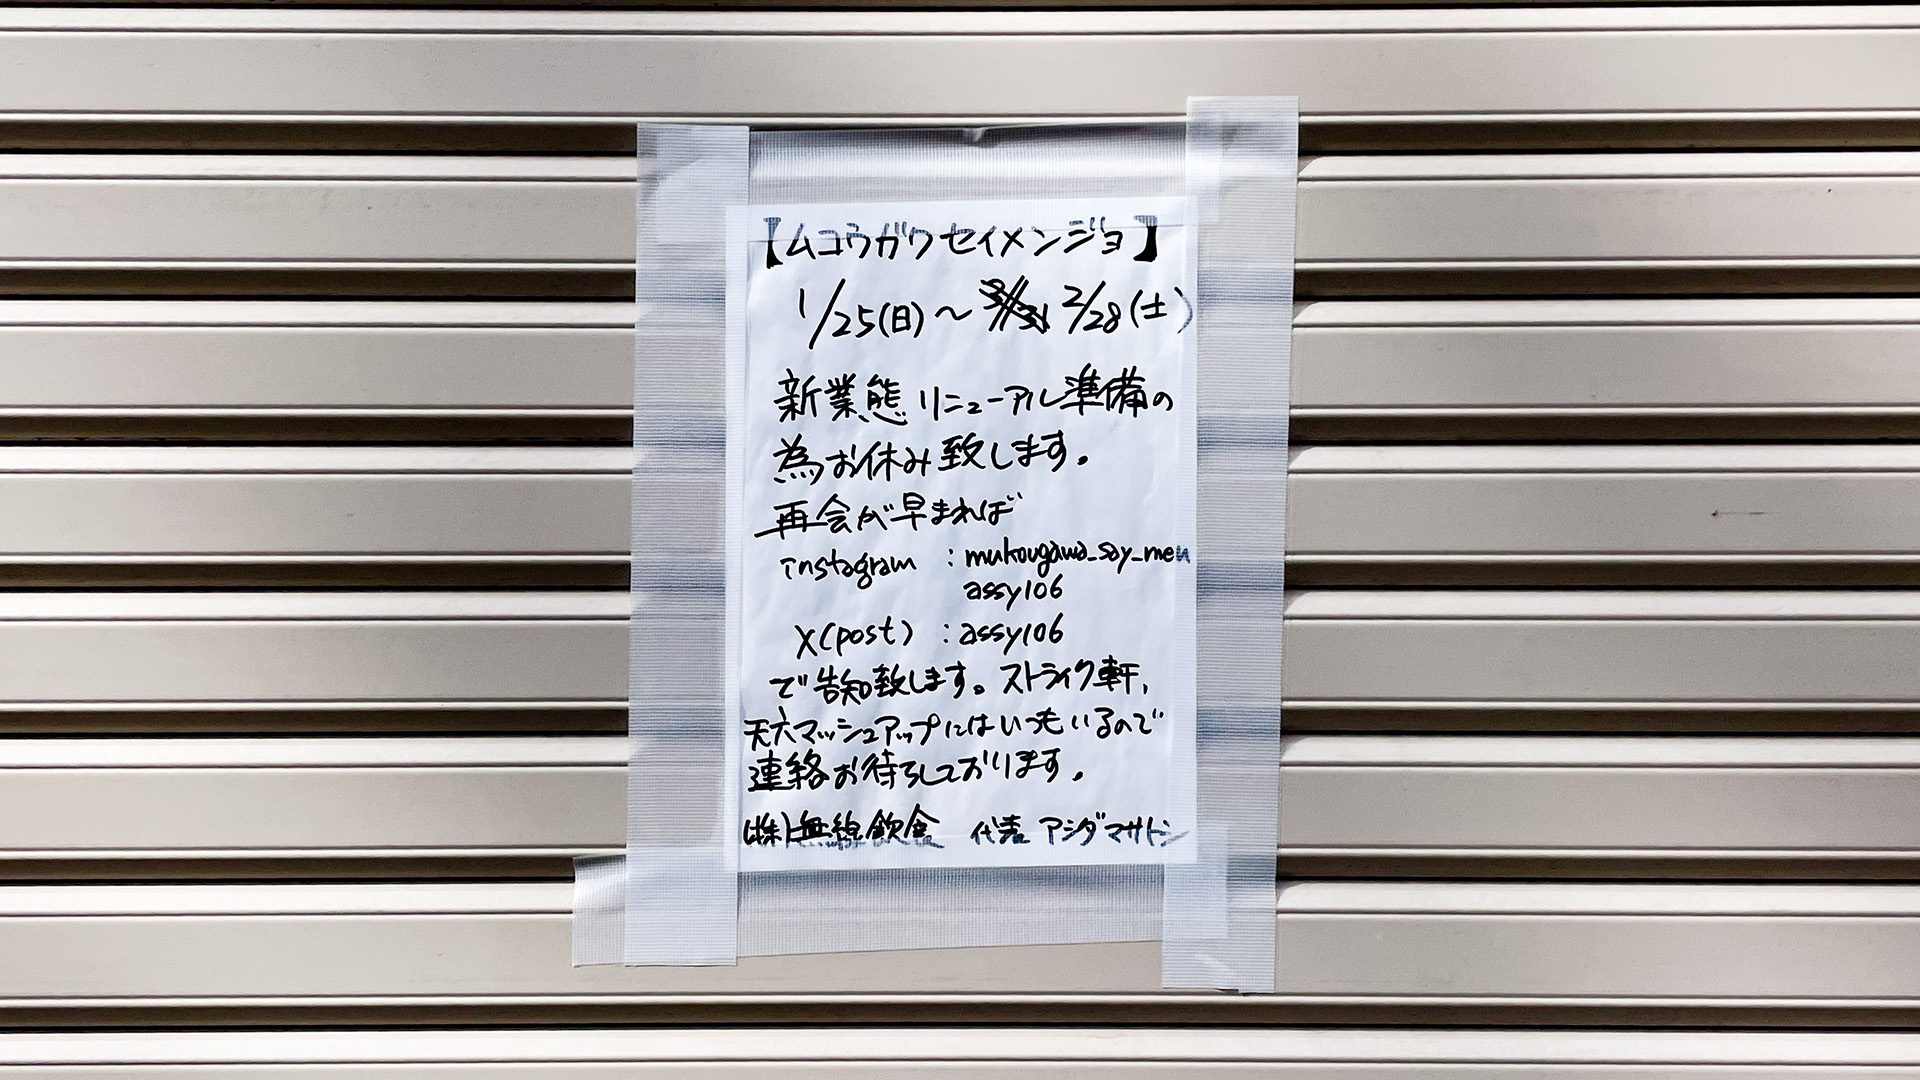 【ムコウガワセイメンジョ】
1/25(日)～ 2/28(土)
新業態リニューアル準備の
為お休み致します。
再会が早まれば
instagram : mukougawa_say_men
assy106
X(post) : assy106
で告知致します。ストライク軒、
天六マッシュアップにはいつもいるので
連絡お待ちしております。
(株)無線飲食 代表 アシダマサトシ